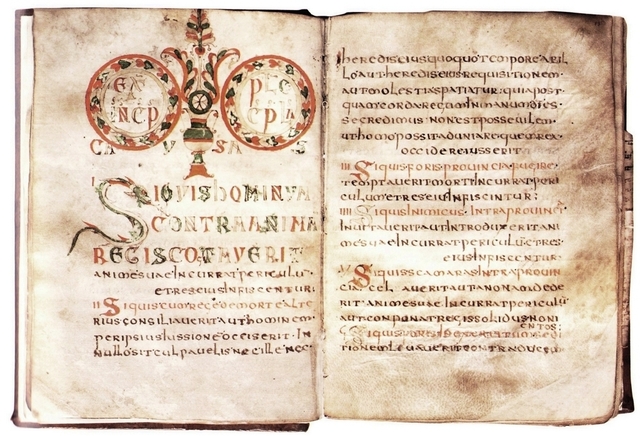 CAVSAS
SIQUISHOMINVM
CONTRAANIMA
REGISCOTAVERIT
animesuaeincurratpericulu
etreseiusinfiscentur:
II Siquiscumregedemortealte
riusconsiliaverit authominem
peripsiusiussioneocciserit· In
nullositculpavelisnecillenec
heredisciusquoquotemporeabil
loautherediseiusrequisitionem·
autmolestiaspatiatur: quiapost
quamcordaregumInmanumdies·
secredimus nonestpossevilem·
uthomopossitaduniarequemrex
occidereiusserit
III Siquisforisprovinciafugire·
temptaverit mortiIncurratperi
culumetreseiusInfiscintur:
IIII Siquisinimicus Intraprovincia
Invitaveritautintroduxeritani
mesuaeIncurratpericulumetres·
eiusInfiscentur·
V SiquisscamarasIntraprovin
ciacelaveritautanonamdede
rit·animesuaeIncurratpericulu
autconponatregissolidusnoni
entos:
tionemlevaveritcontraducem